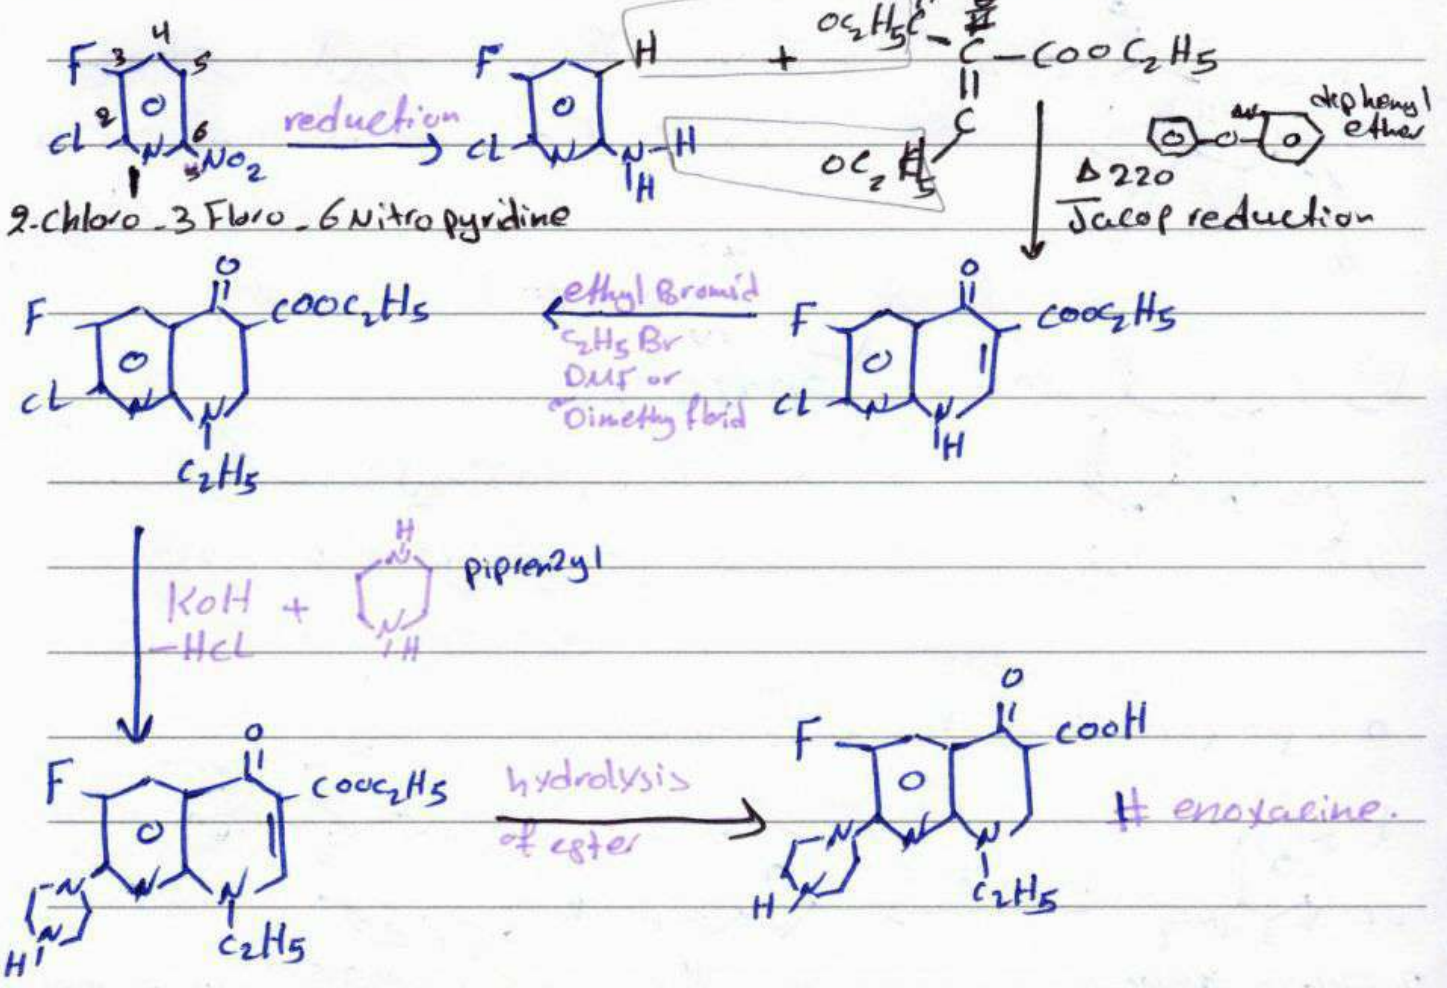 F 3 4 5 Cl 2 N 6 NO2 1
reduction
F H Cl N N-H H
+
OC2H5C C - COOC2H5
C
OC2H5
diphenyl ether
O
Δ 220
Jacop reduction
2-chloro - 3 Floro - 6 Nitro pyridine
F O COOC2H5 Cl N N H
ethyl Bromid
C2H5Br
DMF or
Dimethy florid
F O COOC2H5 Cl N N C2H5
KOH +
-HCL
H N N H
piprenzyl
F O COOC2H5 N N N N H C2H5
hydrolysis
of ester
F O COOH N N N N H C2H5
# enoxacine.